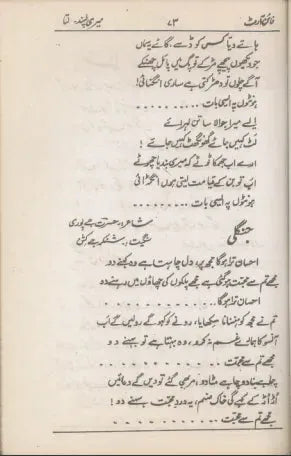 فائن آرٹ ۷۳ میری پسند - لتا
ہائے دیّا کسی کو ڈسے، گائے یہاں
جو دیکھوں پیچھے مڑ کے تو پگ میں پائل جھنکے
آگے چلوں تو دھڑکتی ہے ساری انگنائی!
ہونٹوں پہ ایسی بات ..........
ایسے میرا جوالا سا تن لہرائے
لٹ کہیں جائے گھونگھٹ کہیں جائے!
ارے اب جھمکا ٹوٹے کہ میری بندیا چھوٹے
اب تو بن کے قیامت لیتی ہوں انگڑائی
ہونٹوں پہ ایسی بات ..........
جنگلی
شاعر: حسرت جے پوری
سنگیت: شنکر جے کشن
احسان ترا ہوگا مجھ پر، دل چاہتا ہے وہ کہنے دو
مجھے تم سے محبت ہو گئی ہے مجھے پلکوں کی چھاؤں میں رہنے دو
احسان ترا ہوگا ..........
تم نے مجھ کو ہنسنا سکھایا، رونے کو کہو گے رو لیں گے اب
آنسو کا ہمارے غم نہ کرو، وہ بہتا ہے تو بہنے دو
مجھے تم سے محبت ..........
چاہے بنا دو چاہے مٹا دو، مر بھی گئے تو دیں گے دعائیں
اڑ اڑ کے کہے گی خاک صنم، یہ درد محبت سہنے دو!
مجھے تم سے محبت ..........